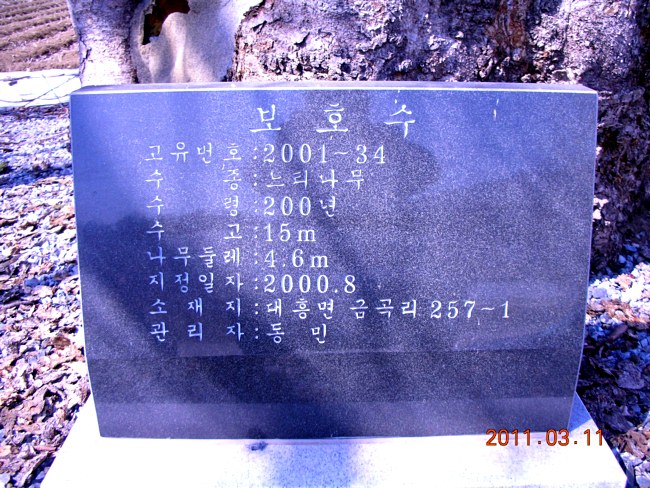 보 호 수
고유번호 : 2001~34
수 종 : 느티나무
수 령 : 200년
수 고 : 15m
나무둘레 : 4.6m
지정일자 : 2000.8
소 재 지 : 대흥면 금곡리 257~1
관 리 자 : 동 민
2011.03.11